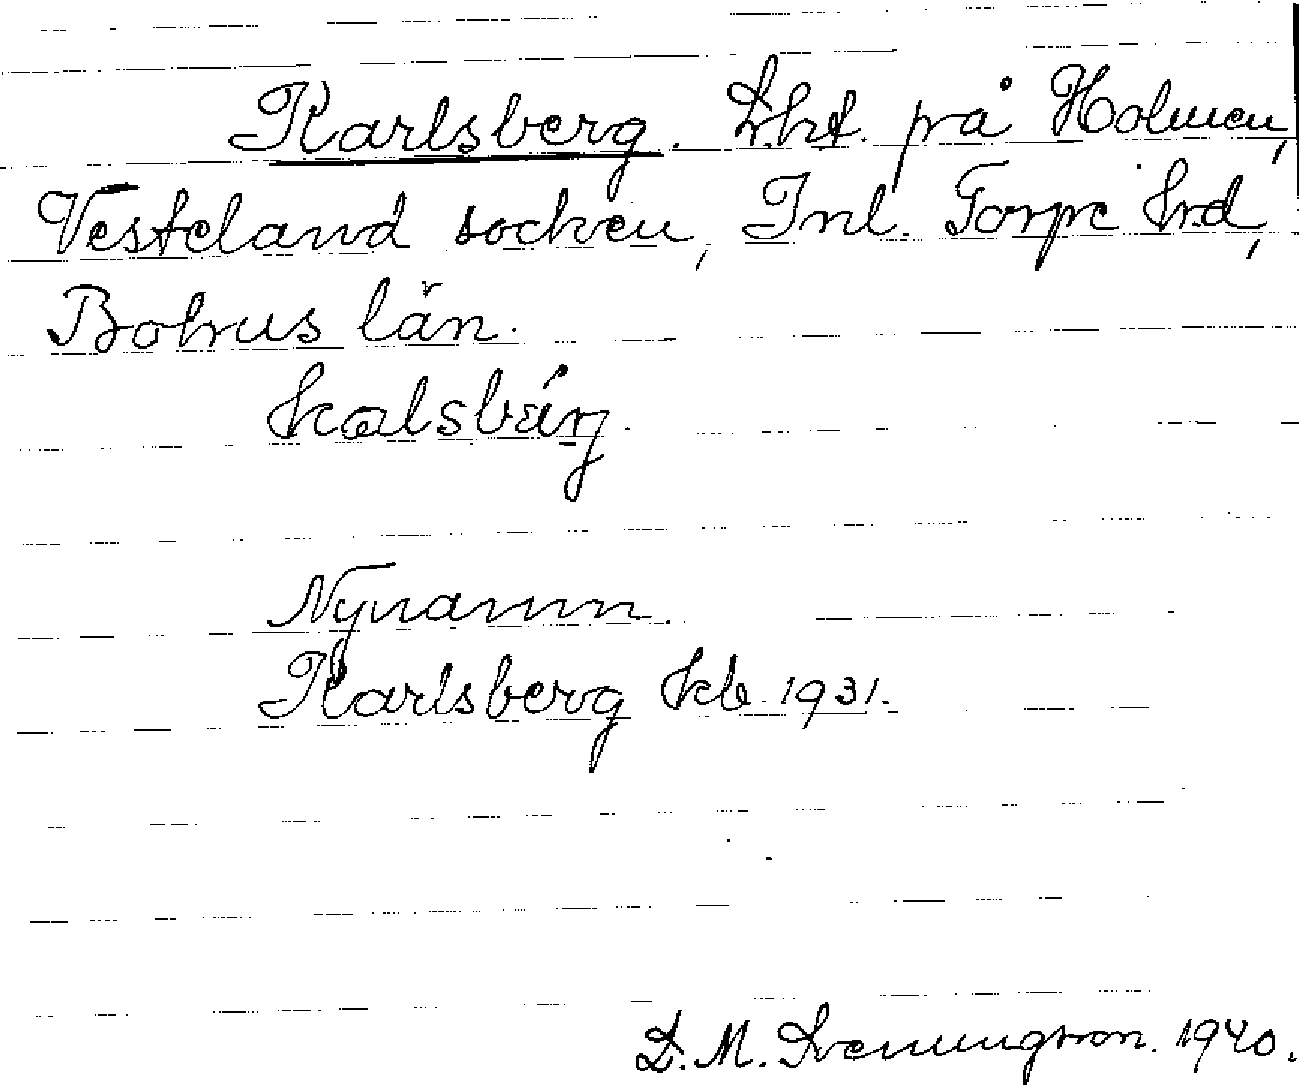 Karlsberg. Lht. på Holmen,
Vesteland socken, Inl. Torpe hd,
Bohus län.
Nynamn.
Karlsberg kb 1931.
D. M. Svenungsson. 1940.